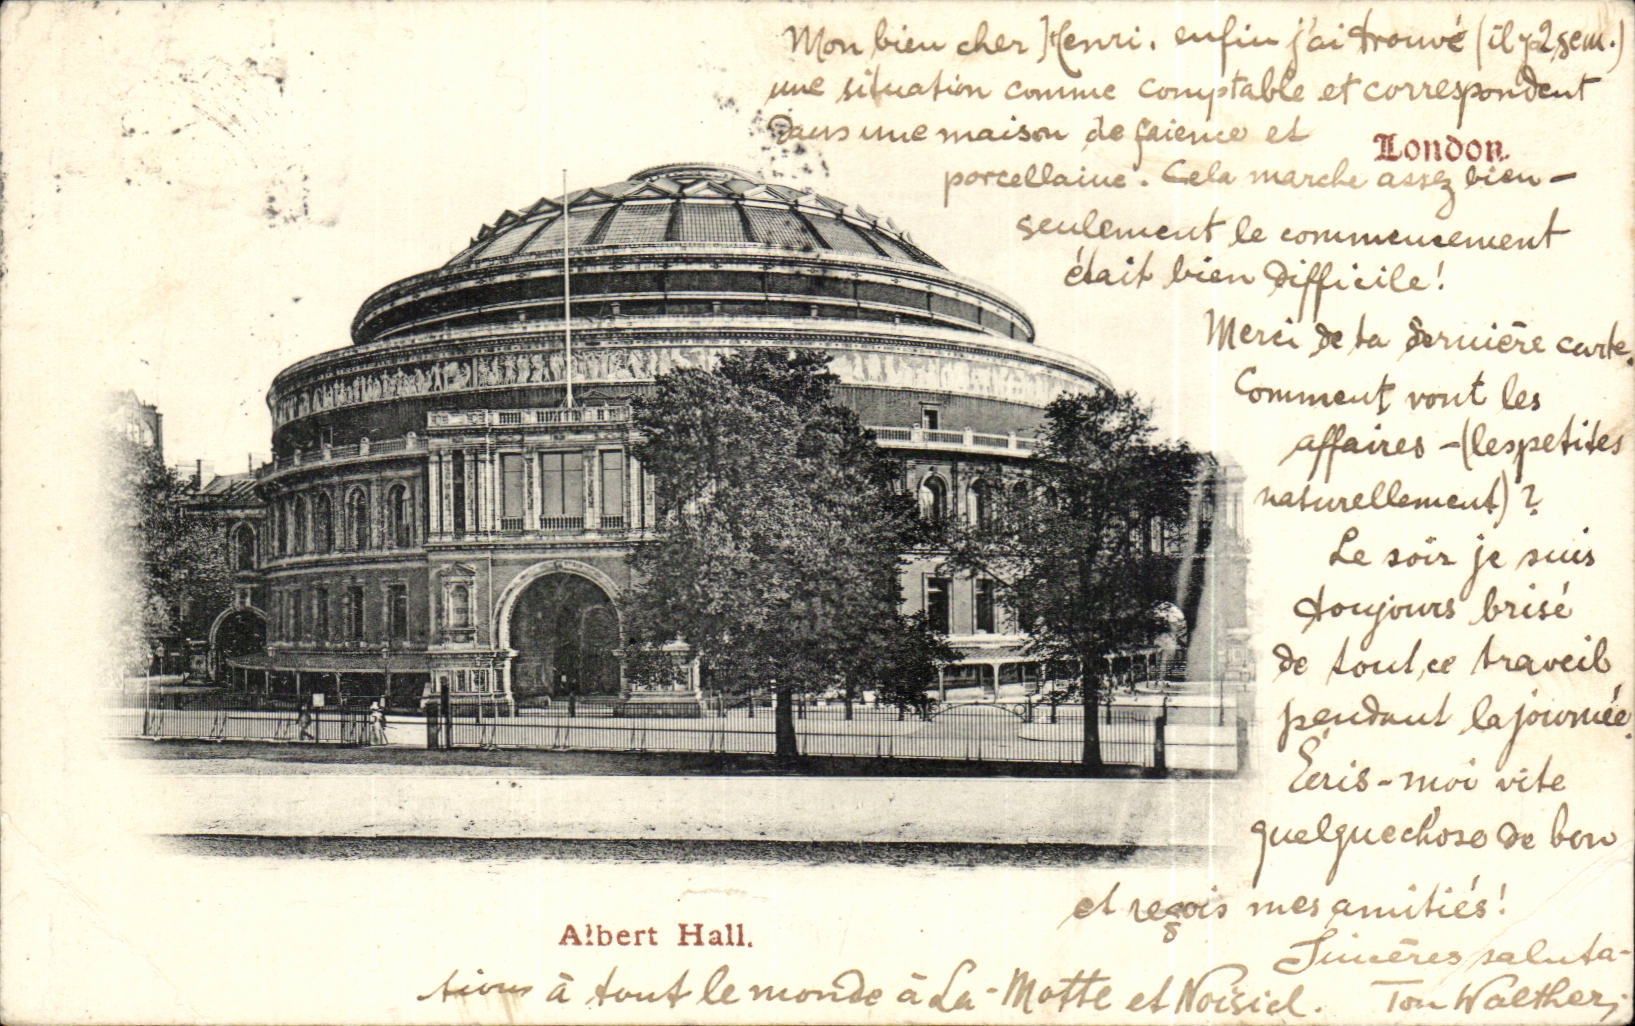 Mon bien cher Henri, enfin j'ai trouvé (il y a 2 sem.)
une situation comme comptable et correspondent
dans une maison de faience et
London.
porcellaine. Cela marche assez bien –
seulement le commencement
était bien difficile!
Merci de ta dernière carte.
Comment vont les
affaires – (les petites
naturellement)?
Le soir je suis
toujours brisé
de tout ce traveil
pendant la journée.
Écris-moi vite
quelque chose de bon
et reçois mes amitiés!
Sincères saluta-
tions à tout le monde à La-Motte et Noisiel. Ton Walther;
Albert Hall.